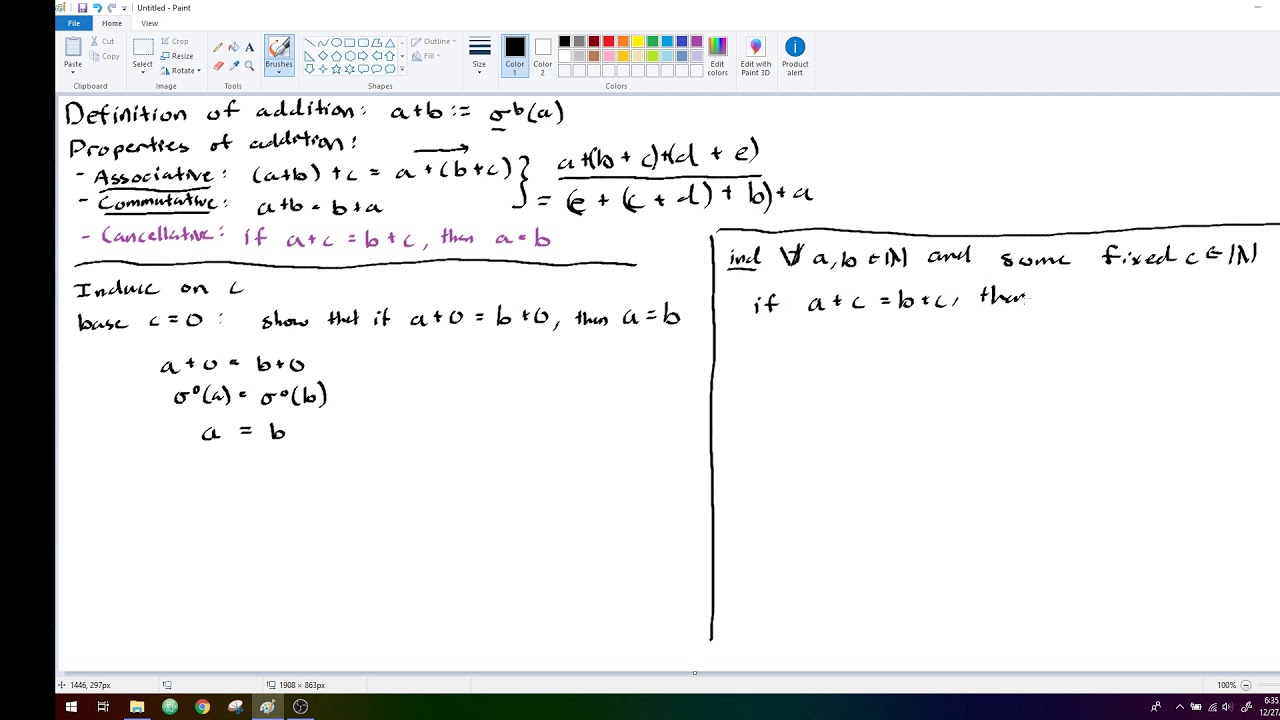 Untitled - Paint
File Home View
Paste Cut Copy Clipboard
Select Crop Resize Rotate Image
A Tools
Brushes
Shapes Outline Fill
Size
Color 1 Color 2 Edit colors Colors
Edit with Paint 3D
Product alert
Definition of addition: a+b := σᵇ(a)
Properties of addition:
- Associative: (a+b) + c = a + (b+c) } a+(b + c)+(d + e)
- Commutative: a+b = b+a = (e + (c + d) + b) + a
- Cancellative: if a+c = b+c, then a=b
Induce on c
base c=0: show that if a+0 = b+0, then a=b
a+0 = b+0
σ⁰(a) = σ⁰(b)
a = b
ind ∀ a,b ∈ ℕ and some fixed c ∈ ℕ
if a+c = b+c, then
1446, 297px
1908 × 863px
100%
6:35
12/27/